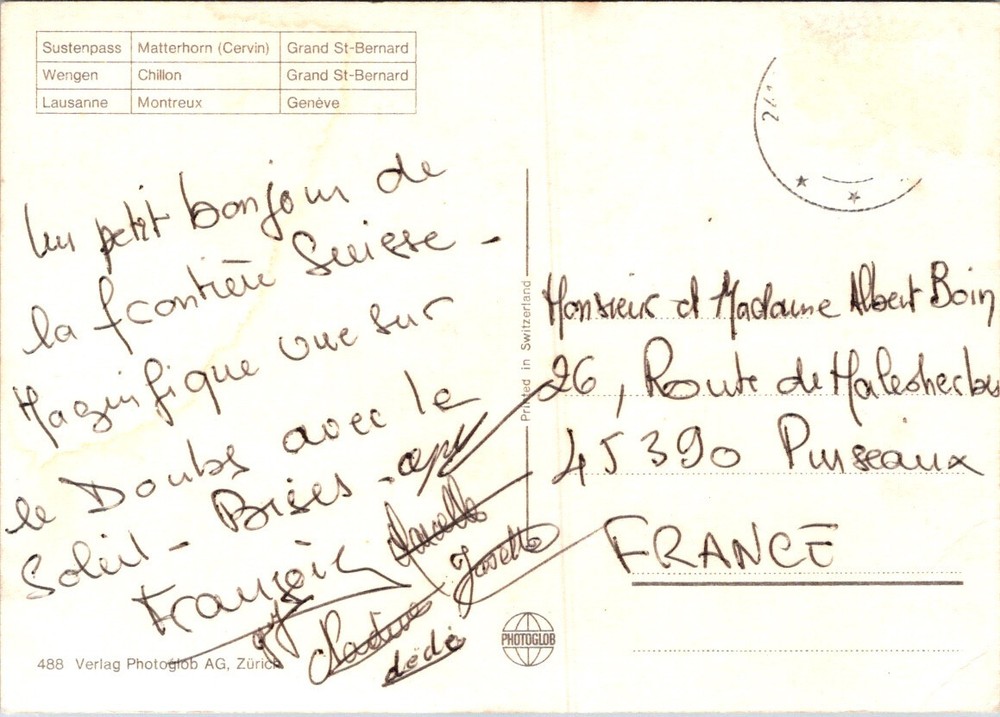 Sustenpass Matterhorn (Cervin) Grand St-Bernard
Wengen Chillon Grand St-Bernard
Lausanne Montreux Genève
Un petit bonjour de
la frontière Suisse -
Magnifique vue sur
le Doubs avec le
Soleil - Bises -
François
Marcelle
Josette
Nadine
dédé
488 Verlag Photoglob AG, Zürich
Printed in Switzerland
PHOTOGLOB
Monsieur et Madame Albert Boin
26, Route de Malesherbes
45390 Puiseaux
FRANCE